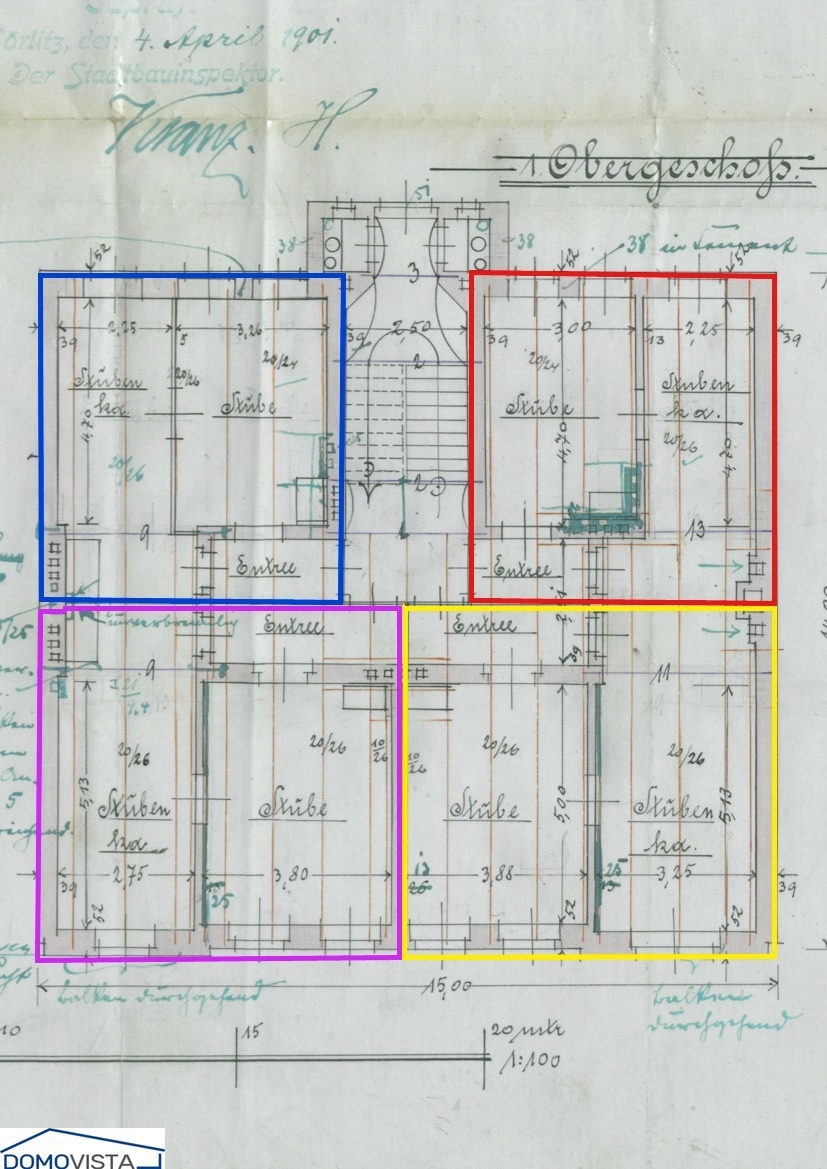 Görlitz, den 4. April 1901.
Der Stadtbauinspektor.
Kranz. H.
1. Obergeschoß.
51
38
38
38 in Cement
52
52
52
3
39
2,25
5
3,26
2,50
39
3,00
13
2,25
39
39
20/24
20/24
2
Stuben
ka.
20/26
Stube
Stube
Stuben
ka.
4,70
20/26
4,70
20/26
4,70
2
9
13
Entree
Entree
unverbrennlich
Entree
Entree
39
9
11
20/26
20/26
10/26
10/26
20/26
20/26
5,13
Stuben
ka.
Stube
Stube
5,00
Stuben
ka.
5,13
39
2,75
25
3,80
13
3,88
25
13
3,25
39
52
52
52
15,00
Balken durchgehend
Balken
durchgehend
10
15
20 mtr
1:100
DOMOVISTA